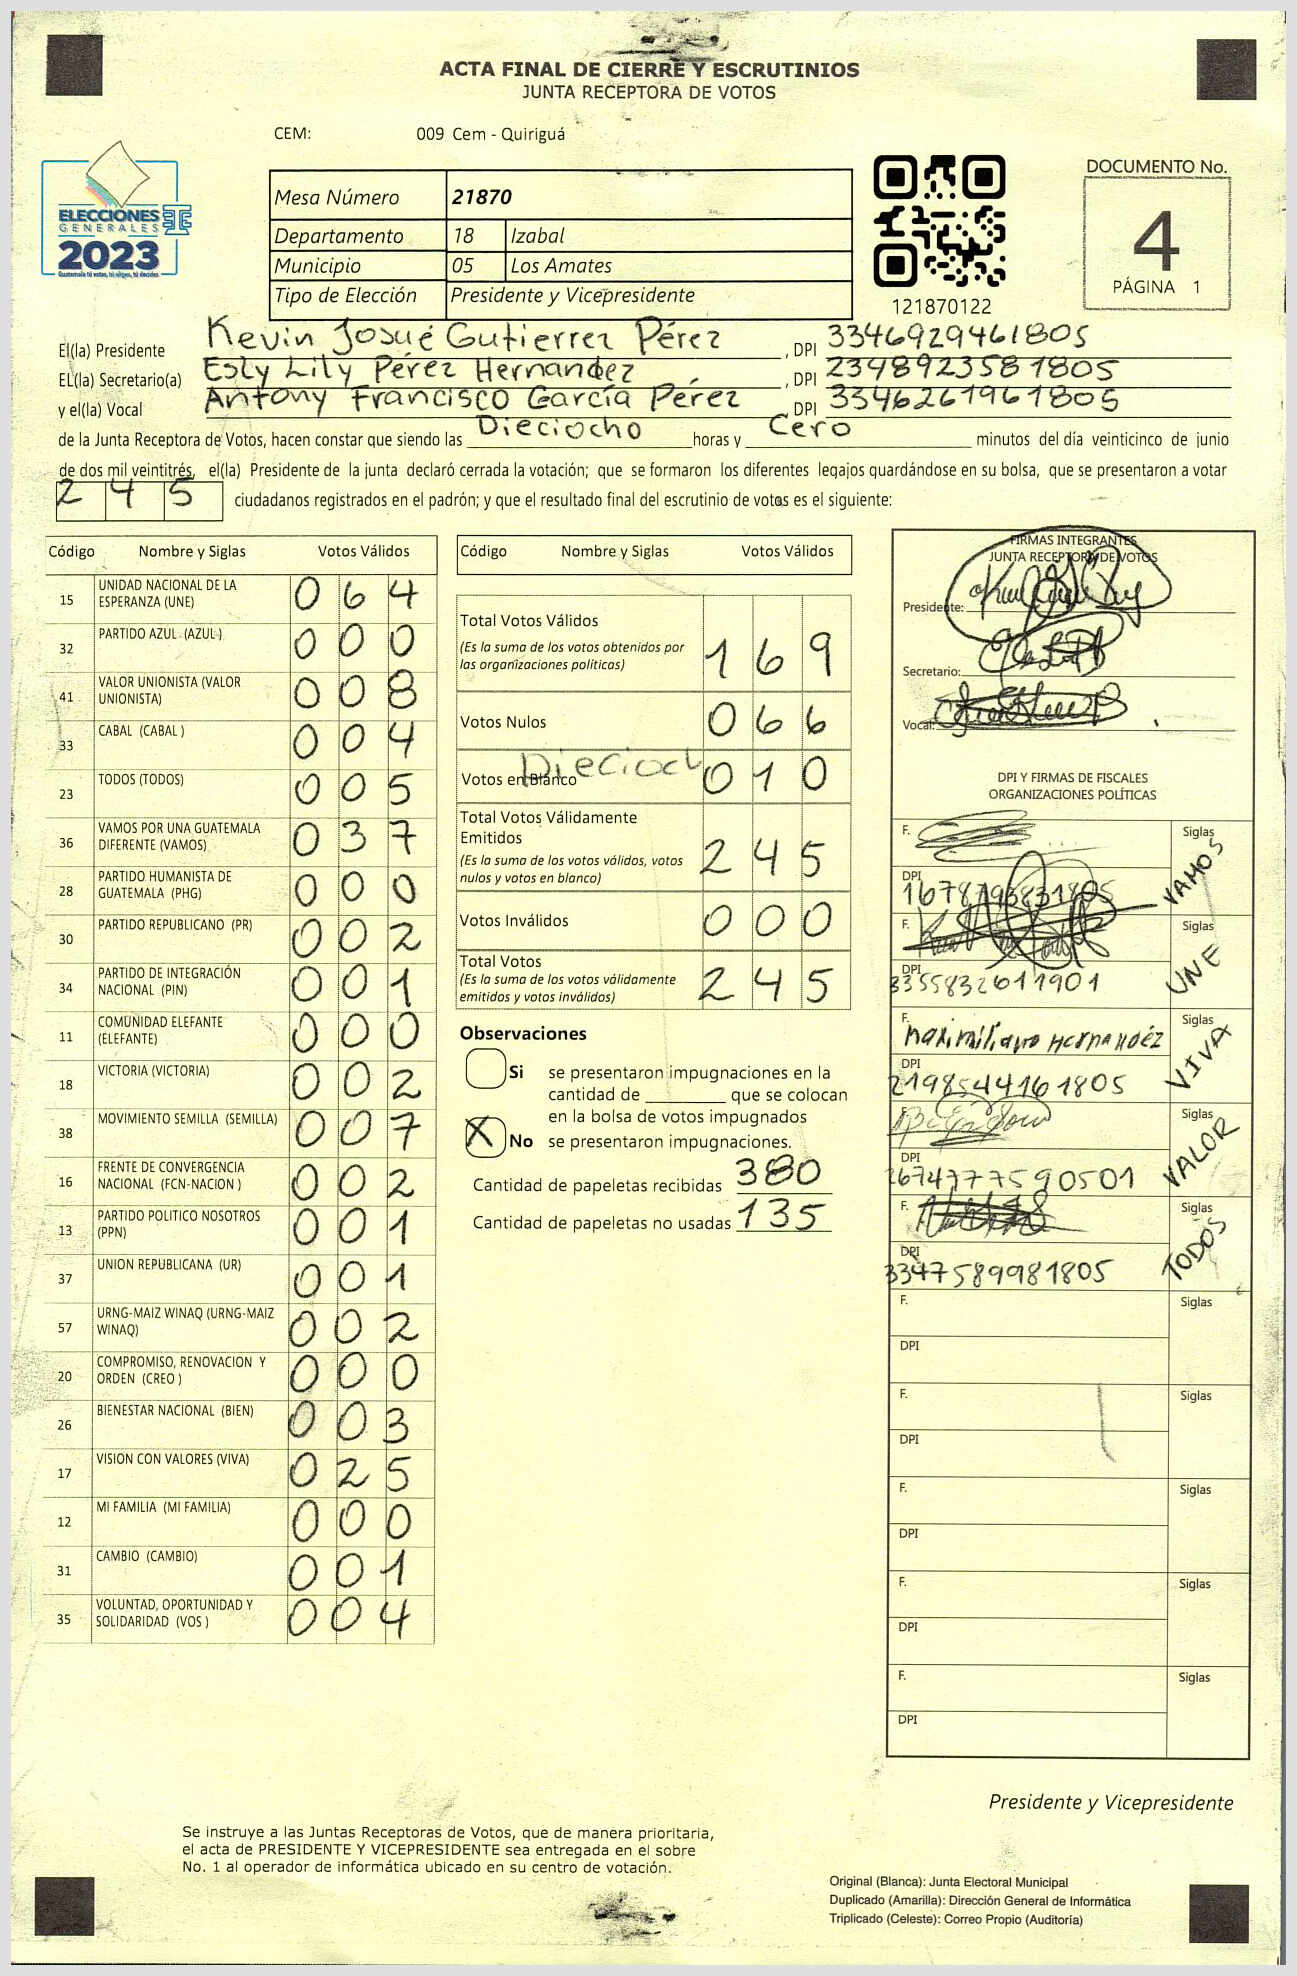 ACTA FINAL DE CIERRE Y ESCRUTINIOS
JUNTA RECEPTORA DE VOTOS
CEM: 009 Cem - Quiriguá
ELECCIONES
GENERALES
2023
Guatemala tú votas, tú eliges, tú decides
Mesa Número 21870
Departamento 18 Izabal
Municipio 05 Los Amates
Tipo de Elección Presidente y Vicepresidente
121870122
DOCUMENTO No.
4
PÁGINA 1
El(la) Presidente Kevin Josué Gutierrez Pérez, DPI 3346929461805
EL(la) Secretario(a) Esly Lily Pérez Hernandez, DPI 2348923581805
y el(la) Vocal Antony Francisco García Pérez DPI 3346261961805
de la Junta Receptora de Votos, hacen constar que siendo las Dieciocho horas y Cero minutos del día veinticinco de junio
de dos mil veintitrés, el(la) Presidente de la junta declaró cerrada la votación; que se formaron los diferentes legajos guardándose en su bolsa, que se presentaron a votar
245 ciudadanos registrados en el padrón; y que el resultado final del escrutinio de votos es el siguiente:
Código Nombre y Siglas Votos Válidos
15 UNIDAD NACIONAL DE LA ESPERANZA (UNE) 064
32 PARTIDO AZUL (AZUL) 000
41 VALOR UNIONISTA (VALOR UNIONISTA) 008
33 CABAL (CABAL ) 004
23 TODOS (TODOS) 005
36 VAMOS POR UNA GUATEMALA DIFERENTE (VAMOS) 037
28 PARTIDO HUMANISTA DE GUATEMALA (PHG) 000
30 PARTIDO REPUBLICANO (PR) 002
34 PARTIDO DE INTEGRACIÓN NACIONAL (PIN) 001
11 COMUNIDAD ELEFANTE (ELEFANTE) 000
18 VICTORIA (VICTORIA) 002
38 MOVIMIENTO SEMILLA (SEMILLA) 007
16 FRENTE DE CONVERGENCIA NACIONAL (FCN-NACION ) 002
13 PARTIDO POLITICO NOSOTROS (PPN) 001
37 UNION REPUBLICANA (UR) 001
57 URNG-MAIZ WINAQ (URNG-MAIZ WINAQ) 002
20 COMPROMISO, RENOVACION Y ORDEN (CREO ) 000
26 BIENESTAR NACIONAL (BIEN) 003
17 VISION CON VALORES (VIVA) 025
12 MI FAMILIA (MI FAMILIA) 000
31 CAMBIO (CAMBIO) 001
35 VOLUNTAD, OPORTUNIDAD Y SOLIDARIDAD (VOS ) 004
Código Nombre y Siglas Votos Válidos
Total Votos Válidos 169
(Es la suma de los votos obtenidos por
las organizaciones políticas)
Votos Nulos 066
Votos en Blanco 010
Total Votos Válidamente
Emitidos 245
(Es la suma de los votos válidos, votos
nulos y votos en blanco)
Votos Inválidos 000
Total Votos 245
(Es la suma de los votos válidamente
emitidos y votos inválidos)
Observaciones
Si se presentaron impugnaciones en la
cantidad de ________ que se colocan
en la bolsa de votos impugnados
X No se presentaron impugnaciones.
Cantidad de papeletas recibidas 380
Cantidad de papeletas no usadas 135
FIRMAS INTEGRANTES
JUNTA RECEPTORA DE VOTOS
Presidente:
Secretario:
Vocal:
DPI Y FIRMAS DE FISCALES
ORGANIZACIONES POLÍTICAS
F. Siglas VAMOS
DPI 1678793831805
F. Siglas UNE
DPI 3355832611901
F. Maximiliano Hernandéz Siglas VIVA
DPI 2198544161805
F. Siglas VALOR
DPI 2674777590501
F. Siglas TODOS
DPI 3347589981805
F. Siglas
DPI
F. Siglas
DPI
F. Siglas
DPI
F. Siglas
DPI
F. Siglas
DPI
Presidente y Vicepresidente
Se instruye a las Juntas Receptoras de Votos, que de manera prioritaria,
el acta de PRESIDENTE Y VICEPRESIDENTE sea entregada en el sobre
No. 1 al operador de informática ubicado en su centro de votación.
Original (Blanca): Junta Electoral Municipal
Duplicado (Amarilla): Dirección General de Informática
Triplicado (Celeste): Correo Propio (Auditoría)